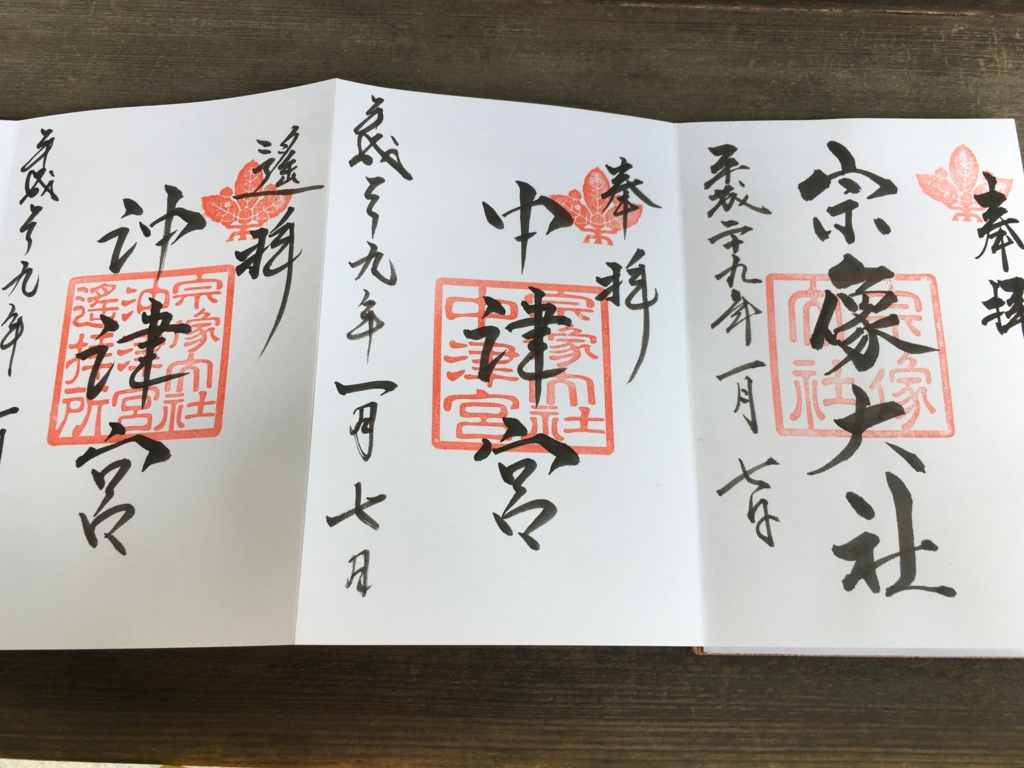 奉拝
宗像大社
宗像
大社
平成二十九年一月七日
奉拝
中津宮
宗像大社
中津宮
平成二十九年一月七日
遥拝
沖津宮
宗像大社
沖津宮
遙拝所
平成二十九年